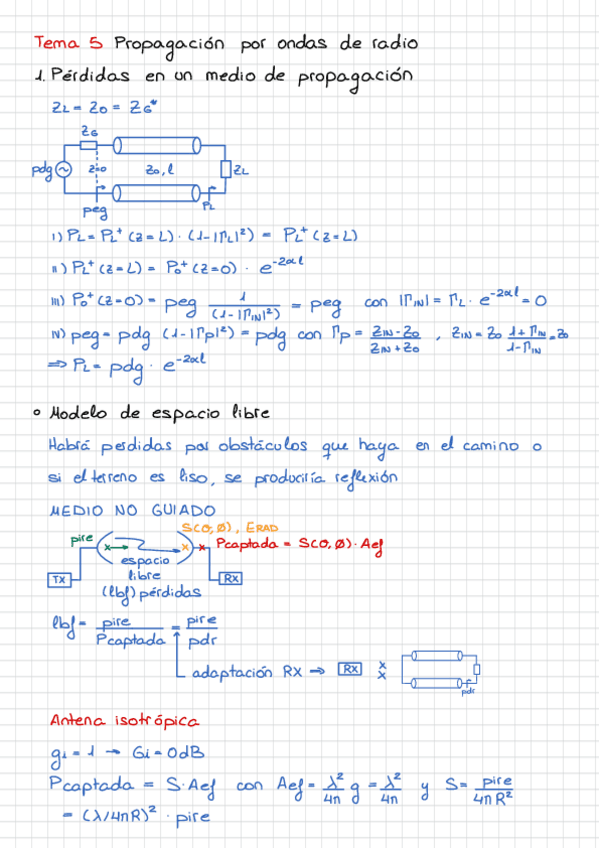 Tema 5 Propagación por ondas de radio
1. Pérdidas en un medio de propagación
ZL = Z0 = ZG*
ZG
pdg z=0 Z0, l ZL
peg PL
I) PL = PL⁺ (z=L) · (1-|ΓL|²) = PL⁺ (z=L)
II) PL⁺ (z=L) = P0⁺ (z=0) · e^-2αl
III) P0⁺ (z=0) = peg 1/(1-|ΓIN|²) = peg con |ΓIN| = ΓL · e^-2αl = 0
IV) peg = pdg (1-|Γp|²) = pdg con Γp = (ZIN - Z0)/(ZIN + Z0) , ZIN = Z0 (1+ΓIN)/(1-ΓIN) = Z0
⇒ PL = pdg · e^-2αl
o Modelo de espacio libre
Habrá perdidas por obstáculos que haya en el camino o
si el terreno es liso, se produciría reflexión
MEDIO NO GUIADO
S(O,Ø), ERAD
pire Pcaptada = S(O,Ø)·Aef
espacio
TX libre RX
(lbf) pérdidas
lbf = pire/Pcaptada = pire/pdr
adaptación RX → RX x x
pdr
Antena isotrópica
gi = 1 → Gi = 0dB
Pcaptada = S·Aef con Aef = λ²/4π g = λ²/4π y S = pire/4πR²
= (λ/4πR)² · pire